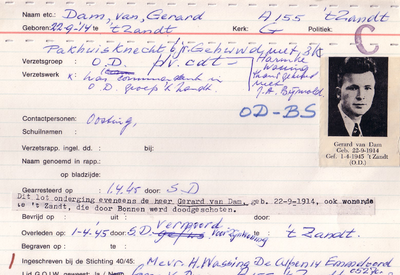 Naam etc.: Dam, van, Gerard A 155 't Zandt
Geboren: 22-9-'14 te 't Zandt Kerk: G Politiek:
C
Pakhuisknecht
Verzetsgroep: O.D. plv. cdt -
Verzetswerk x was commandant in
O.D. groep 't Zandt.
Harmke
Wassing
thans gehuwd
met
OD-BS
Contactpersonen: Oosting,
Schuilnamen:
Verzetsrap. ingel. dd.: bij:
Naam genoemd in rapp.:
op bladzijde:
Gearresteerd op 1.4.45 door: S.D
Dit lot onderging eveneens de heer Gerard van Dam, geb. 22-9-1914, ook wonende
te 't Zandt, die door Bonnen werd doodgeschoten.
Bevrijd op - uit: door:
Overleden op: 1-4-'45 S.D. vermoord te 't Zandt.
Begraven op: te
Ingeschreven bij de Stichting 40/45: Mevr. H. Wassing
Gerard van Dam
Geb. 22-9-1914
Gef. 1-4-1945 't Zandt
(O.D.)